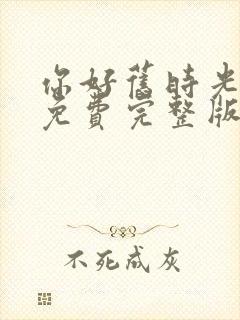 你好舊時光
免費完整版
不死成灰